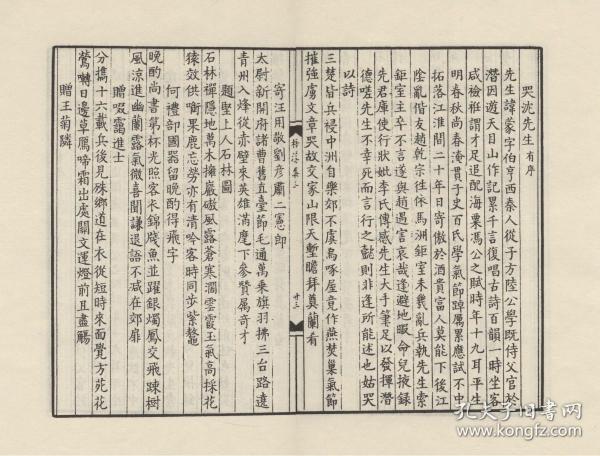 哭沈先生有序
先生諱蒙字伯亨西秦人從子方陸公學既侍父官於
潛因遊天目山作記累千言復唱古詩百韻一時坐客
咸檢袵謂才足追配海粟馮公之賦時年十九耳平生
明春秋尚春淹貫子史百氏學氣節踔厲累應試不中
拓落江淮間二十年日寄傲於酒貴富人莫能下後江
陰亂偕友趙乾宗往依馬洲鉅室未幾亂兵執先生索
鉅室主卒不言遂與趙遇害哀哉逢避地暇命兒掖録
先君庫使行狀妣李氏傳感先生大手筆足以發揮潛
德嗟先生不幸死而言行之懿則非逢所能述也姑哭
以詩
三楚皆兵祲中洲自樂郊不虞烏啄屋竟作燕焚巢氣節
摧強虜文章哭故交家山限天塹瞻拜奠蘭肴
寄汪用敬劉彦肅二憲郎
太尉新開府諸曹舊直臺節毛通萬乘旗羽拂三台路遠
青州入烽從赤壁來英雄滿麾下參贊属奇才
題聖上人石林圖
石林禪隱地萬木擁巖磝風露蒼寒濶雲霞玉氣高採花
猿效供銜果鹿忘勞亦有清吟客時同步紫鼇
何禮部國器留晚酌得飛字
晚酌尚書第杯光照客衣錦牋魚並躍銀燭鳳交飛踈樹
風涼進幽蘭露氣微喜聞謙退語不减在郊扉
贈啜靄進士
分攜十六載兵後見殊鄉道在衣從短時來面覺方苑花
鶯囀日邊草雁啼霜出處關文運燈前且盡觴
贈王菊隣
廿三
孔夫子旧书网
www.kongfz.com